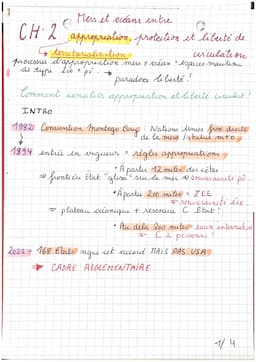 CH-2 Mers et océans entre
appropriation, protection et liberté de
↳ territorialisation circulation
processus d'appropriation mer + océan = espaces maritimes
de type éco + po → paradoxe liberté !
Comment concilier appropriation et liberté circuler ?
INTRO
1982 Convention Montego Bay : Nations Unies fixe droit
de la mer
1994 entrée en vigueur = règles appropriations
• À partir 12 miles des côtes
⇒ frontière État "glisse" sur la mer ⇒ souveraineté po..
• À partir 200 miles = ZEE
⇒ souveraineté éco..
= plateau océanique + ressources C État !
• Au delà 200 miles eaux internationales
⇒ C à personne !
2022 = 168 États + accord MAIS PAS USA
⇒ CADRE RÉGLEMENTAIRE
1/4